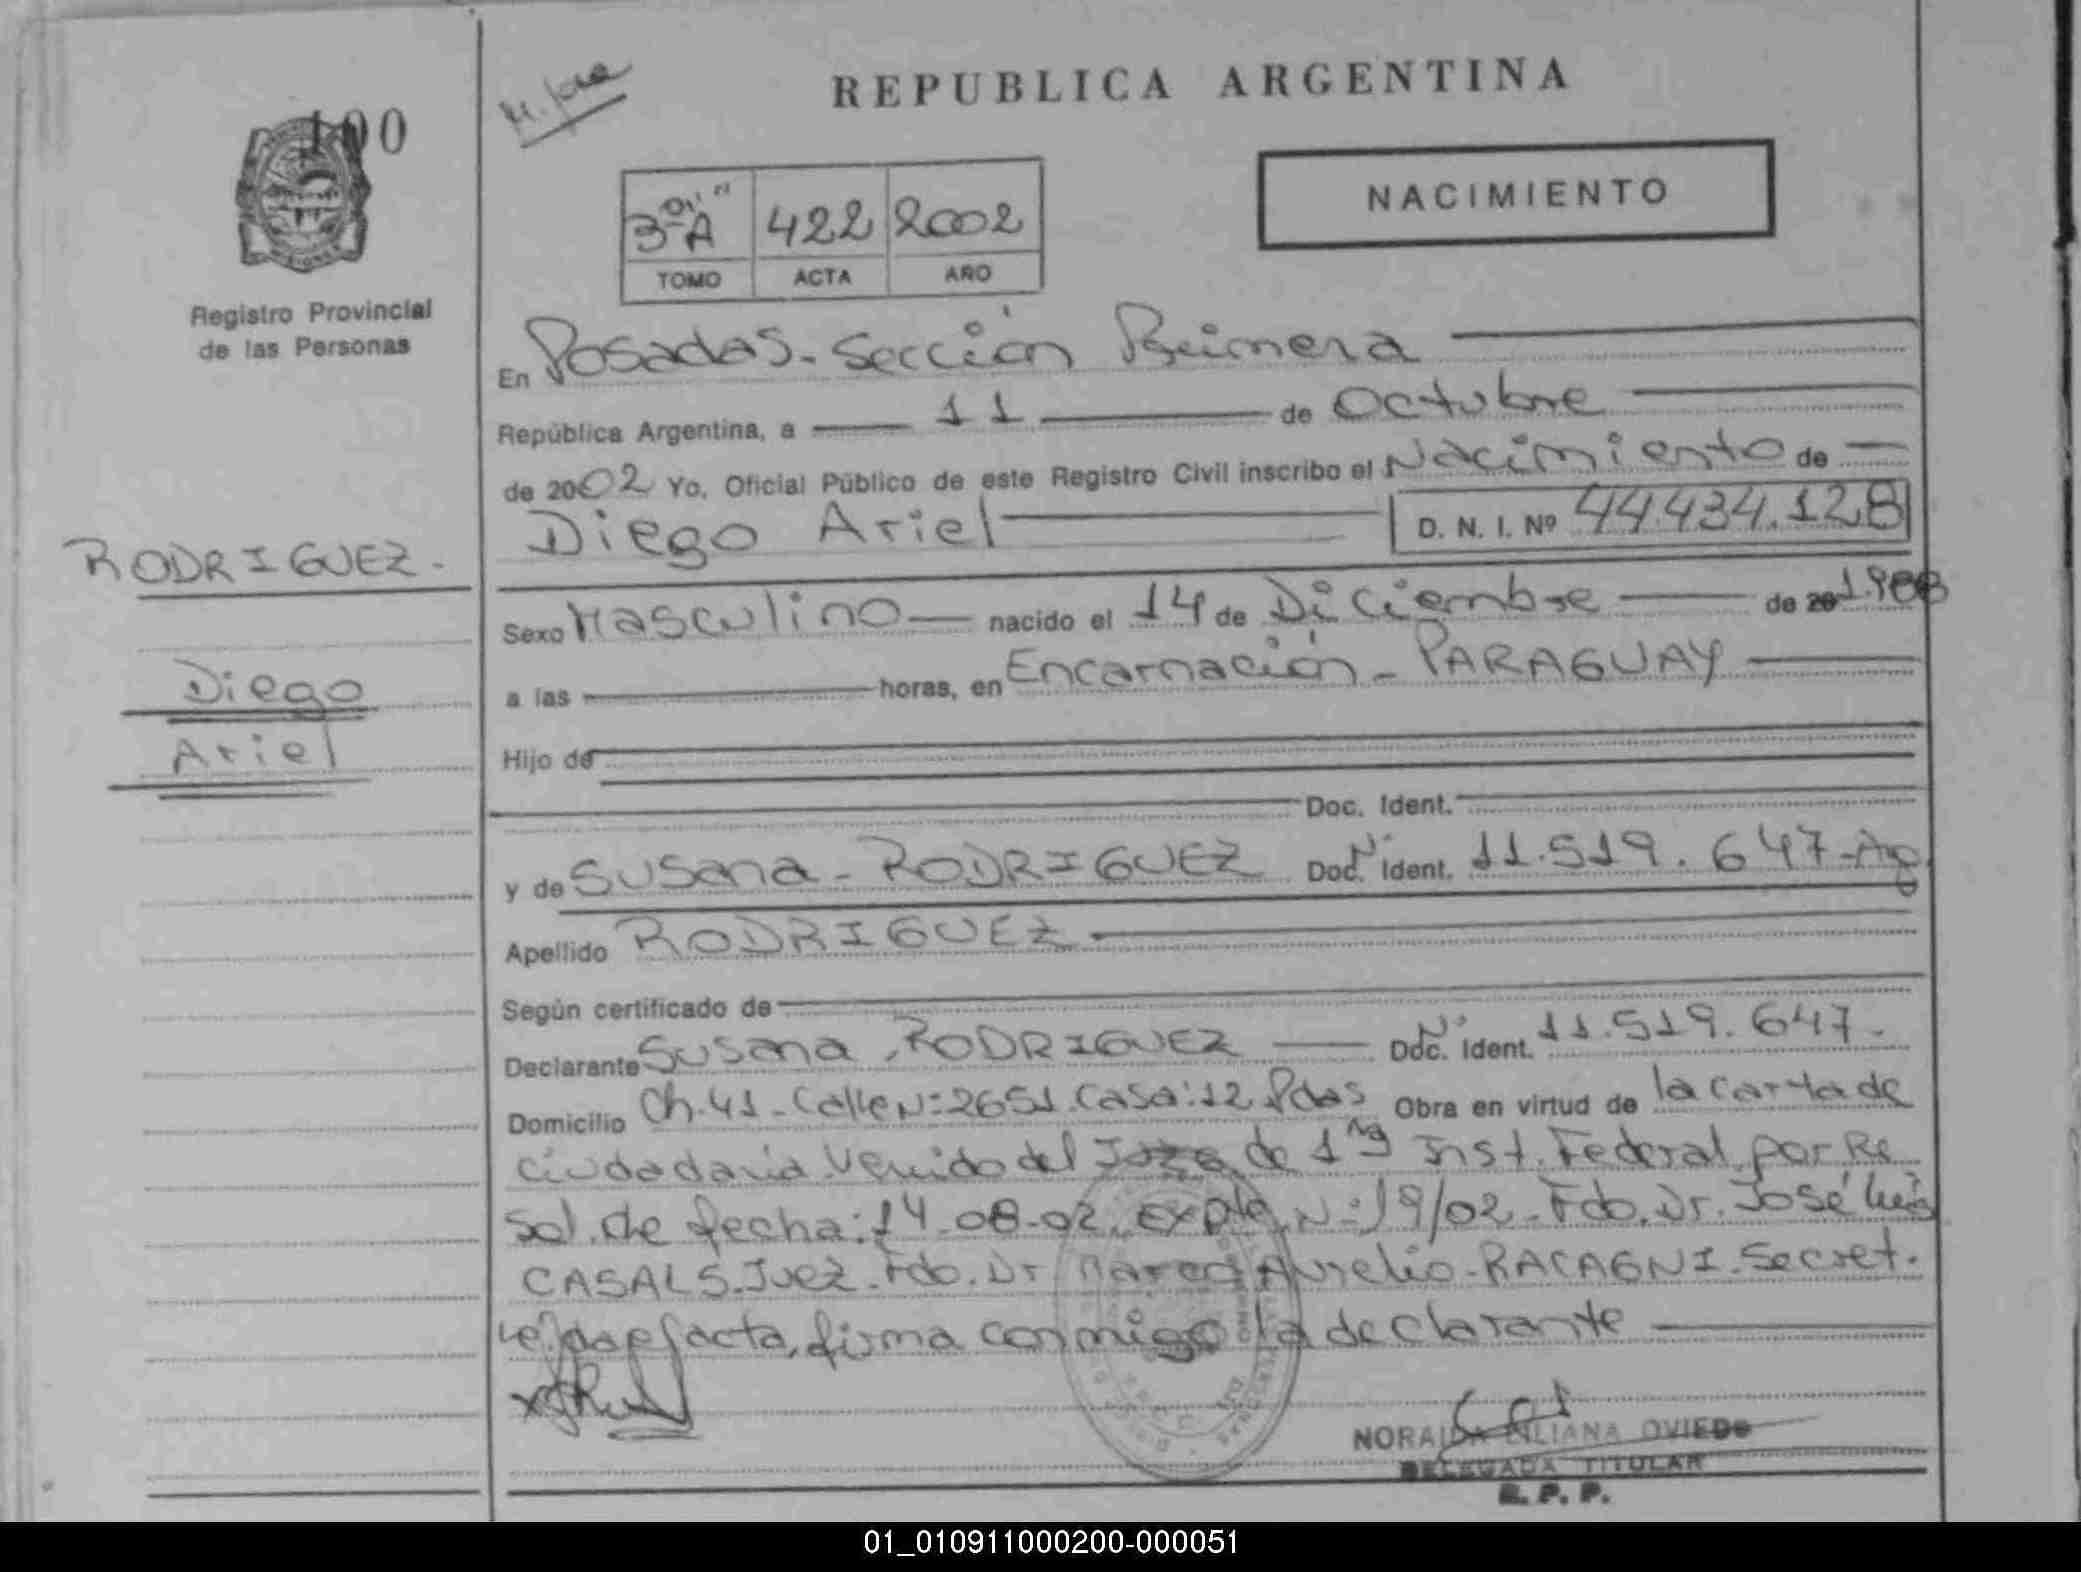 100
M. Jose
REPUBLICA ARGENTINA
NACIMIENTO
3º "A" 422 2002
TOMO ACTA AÑO
Registro Provincial
de las Personas
En Posadas - Sección Primera
República Argentina, a 11 de Octubre
de 2002 Yo, Oficial Público de este Registro Civil inscribo el Nacimiento de
Diego Ariel D. N. I. Nº 44.434.128
RODRIGUEZ.
Diego
Ariel
Sexo Masculino nacido el 14 de Diciembre de 20
a las horas, en Encarnación - PARAGUAY
Hijo de
Doc. Ident.
y de Susana - RODRIGUEZ Doc. Nº Ident. 11.519.647-Ag
Apellido RODRIGUEZ
Según certificado de
Declarante Susana, RODRIGUEZ Doc. Nº Ident. 11.519.647.
Domicilio Ch. 41 - Calle Nº: 2651. Casa: 12 Pdas Obra en virtud de la carta de
ciudadania venido del Juzg. de 1ra Inst. Federal, por Re
sol. de fecha: 14-08-02, Expte. Nº: 19/02 - Fdo. Dr. José Luis
CASALS. Juez. Fdo. Dr Marco Aurelio - RACAGNI. Secret.
acta, firma conmigo la declarante
NORAIDA LILIANA OVIEDO
DELEGADA TITULAR
R. P. P.
01_010911000200-000051